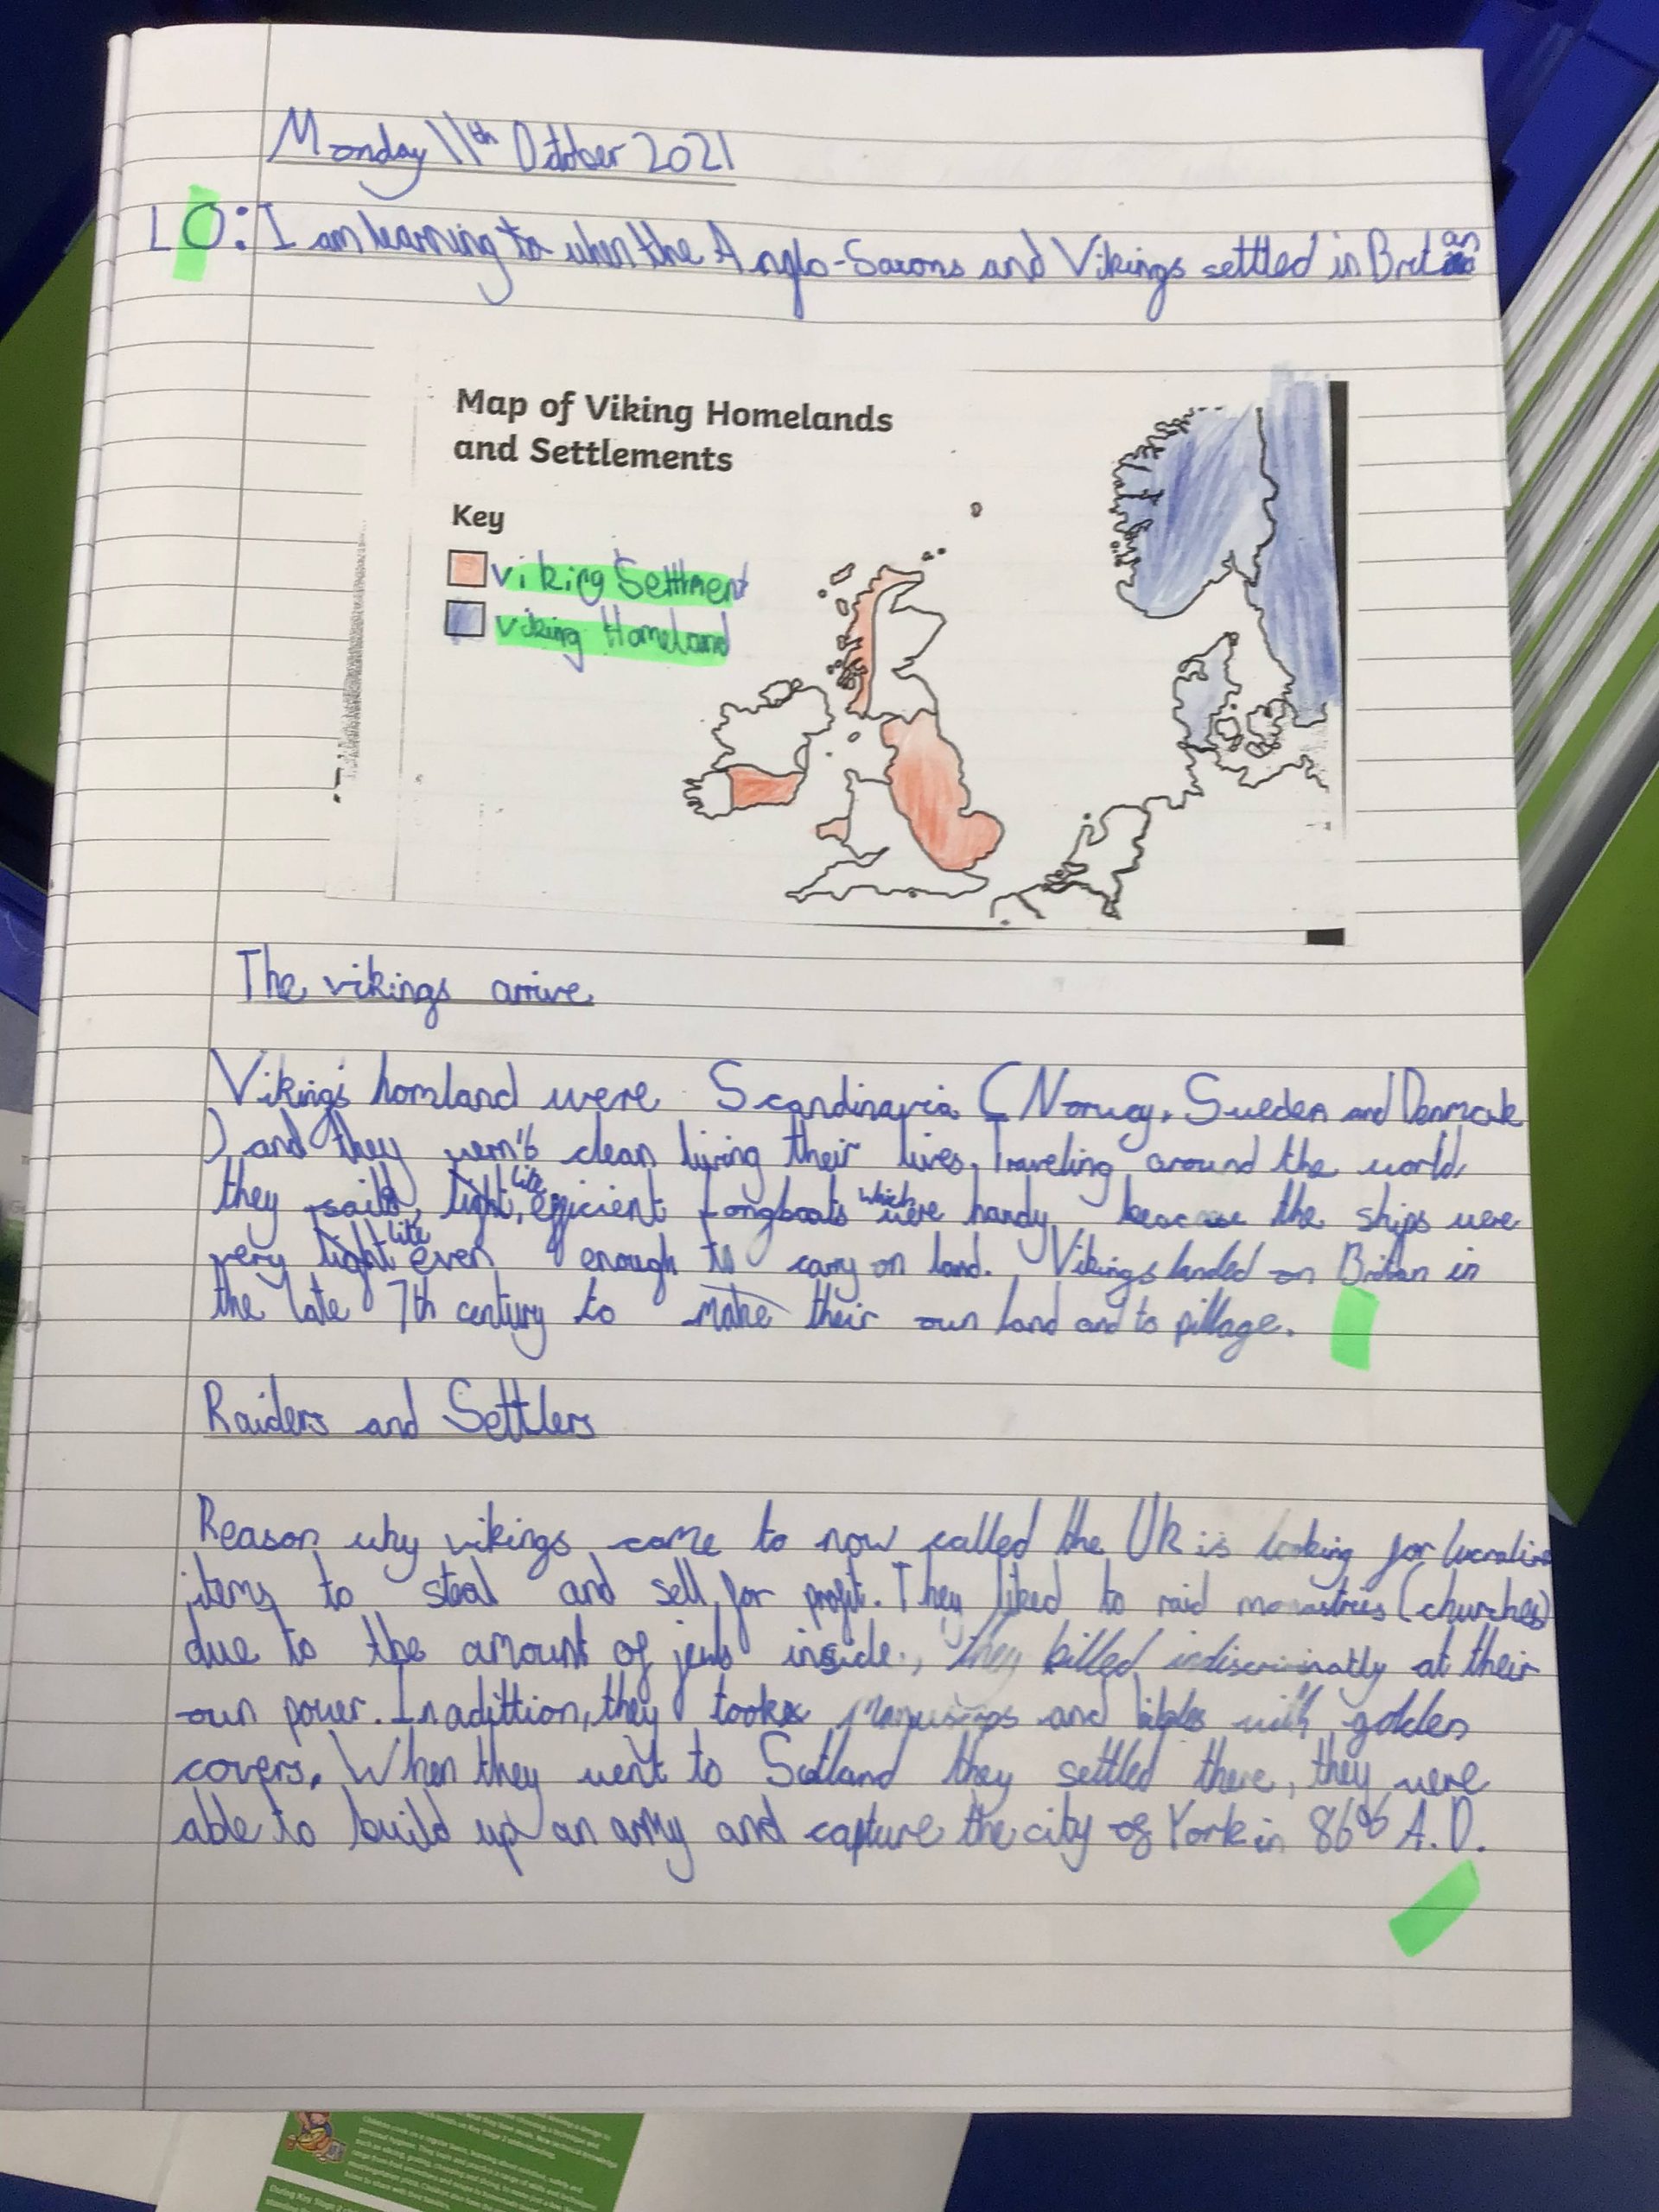 Monday 11th October 2021
LO: I am learning to when the Anglo-Saxons and Vikings settled in Britan
Map of Viking Homelands
and Settlements
Key
Viking Settlment
Viking Homeland
The vikings arrive
Viking's homland were Scandinavia (Norway, Sweden and Denmark
) and they wern't clean living their lives. Traveling around the world,
they sailed, light, lite efficient Longboats which were handy because the ships were
very light lite even enough to carry on land. Vikings landed on Britan in
the late 7th century to make their own land and to pillage.
Raiders and Settlers
Reason why vikings came to now called the UK is looking for lucrative
items to steal and sell for profit. They liked to raid monastries (churches)
due to the amount of jewls inside, they killed indiscriminatly at their
own power. In adittion, they took manuscrips and bibles with golden
covers. When they went to Scotland they settled there, they were
able to build up an army and capture the city of York in 866 A.D.